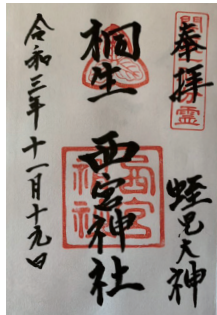 奉拝
蛭児大神
桐生 西宮神社
西宮
神社
令和三年十一月十九日